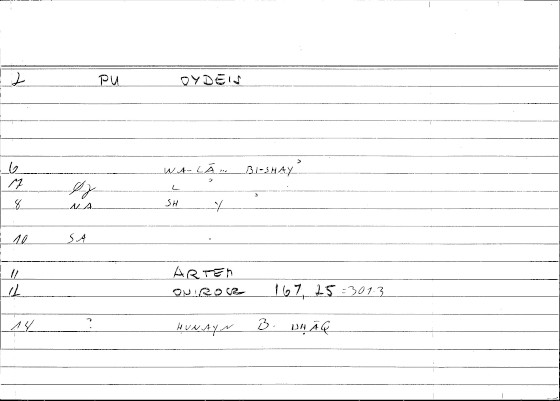 2 PU OYDEIS
6 WA-LĀ... BI-SHAYʾ
7 L ʾ
8 NA SH Y ʾ
10 SA
11 ARTEM
12 ONIROCR 167, 25 = 301.3
14 ? HUNAYN B. ISḤĀQ